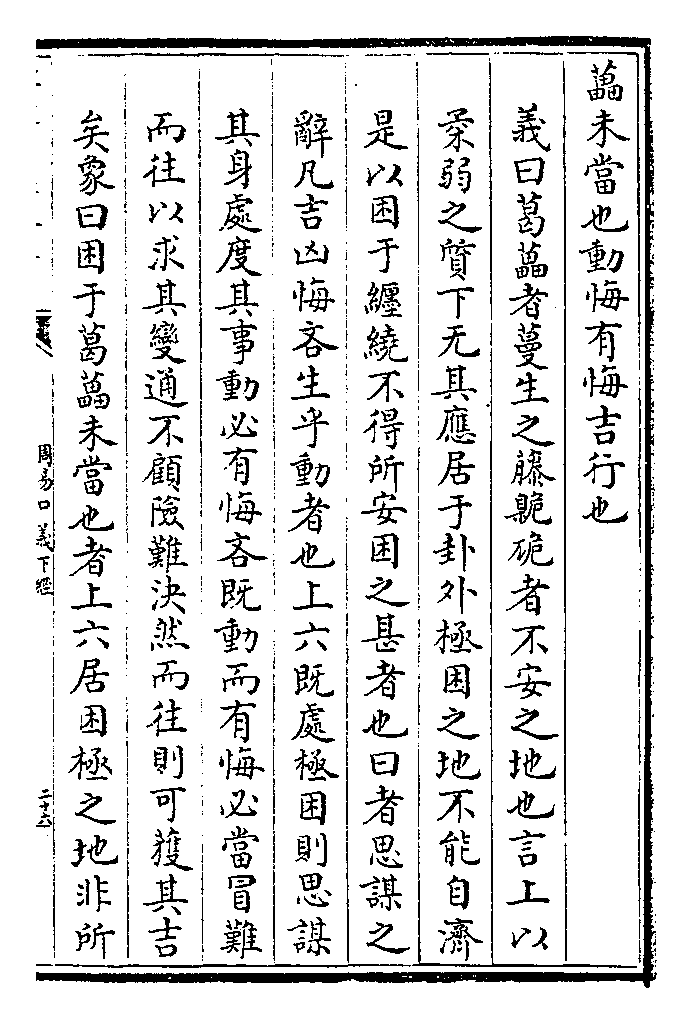 藟未當也動悔有悔吉行也
義曰葛藟者蔓生之藤臲硊者不安之地也言上以
柔弱之質下无其應居于卦外極困之地不能自濟
是以困于纏繞不得所安困之甚者也曰者思謀之
辭凡吉凶悔吝生乎動者也上六既處極困則思謀
其身處度其事動必有悔吝既動而有悔必當冒難
而往以求其變通不顧險難決然而往則可獲其吉
矣象曰困于葛藟未當也者上六居困極之地非所
周易口義下經
二十六